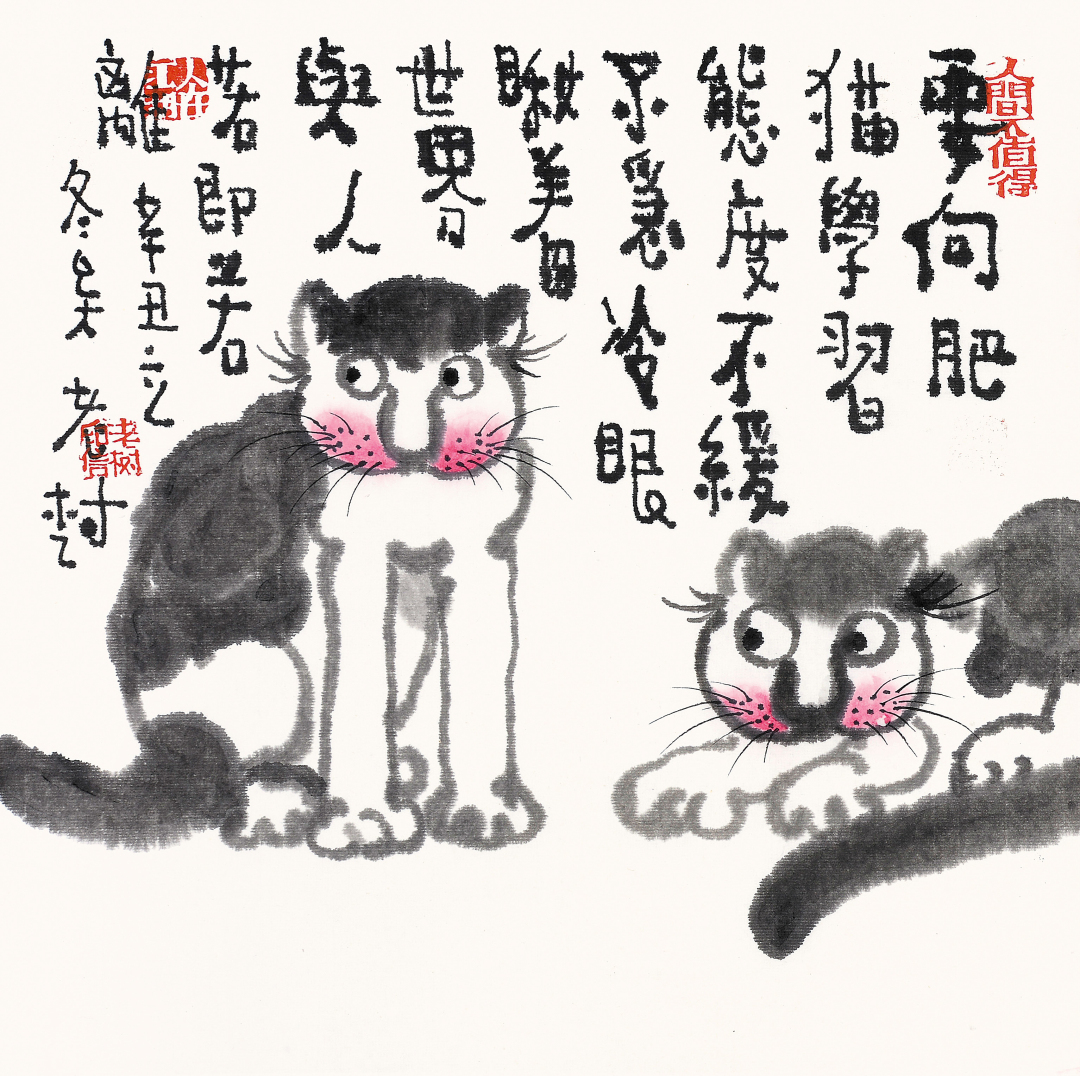 人間不值得
要向肥
猫學習
態度不緩
不急冷眼
瞅着
世界
與人
若即若
離
辛丑立
冬
老樹
老树